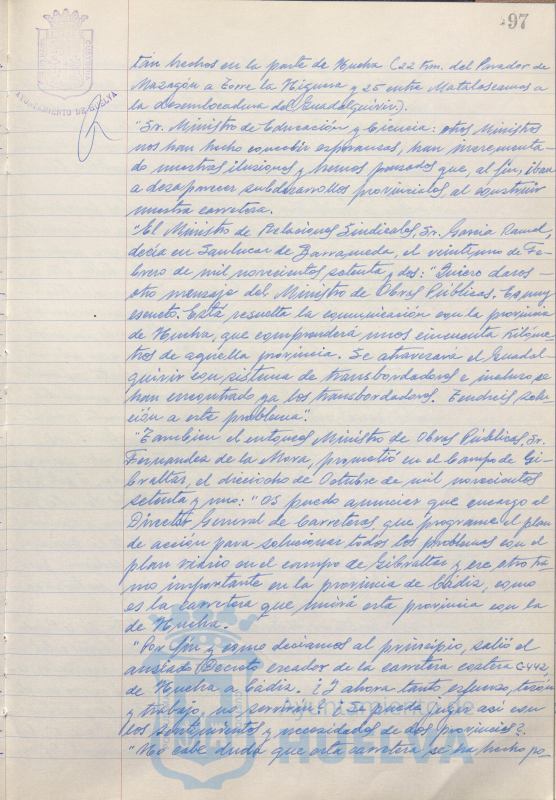 97
AYUNTAMIENTO DE HUELVA
tán hechos en la parte de Huelva (22 Km. del Parador de
Mazagón a Torre la Higuera y 25 entre Matalascañas a
la desembocadura del Guadalquivir).
"Sr. Ministro de Educación y Ciencia: otros Ministros
nos han hecho concebir esperanzas, han incrementa-
do nuestras ilusiones y hemos pensados que, al fin, iban
a desaparecer subdesarrollos provinciales al construir
nuestra carretera.
"El Ministro de Relaciones Sindicales, Sr. García Ramal,
decía en Sanlucar de Barrameda, el veintiuno de Fe-
brero de mil novecientos setenta y dos: "Quiero daros
otro mensaje del Ministro de Obras Públicas. Es muy
escueto. Está resuelta la comunicación con la provincia
de Huelva, que comprenderá unos cincuenta Kilóme-
tros de aquella provincia. Se atravesará el Guadal-
quivir con sistema de transbordadores e incluso se
han encontrado ya los transbordadores. Tendreis solu-
ción a este problema".
"Tambien el entonces Ministro de Obras Públicas, Sr.
Fernandez de la Mora, prometió en el Campo de Gi-
braltar, el dieciocho de Octubre de mil novecientos
setenta y uno: "Os puedo anunciar que encargo el
Director General de Carreteras, que programe el plan
de acción para solucionar todos los problemas con el
plan viario en el campo de Gibraltar y ese otro tra-
mo importante en la provincia de Cádiz, como
es la carretera que unirá esta provincia con la
de Huelva.
"Por fin y como deciamos al principio, salió el
ansiado Decreto creador de la carretera costera C-442,
de Huelva a Cádiz. ¿Y ahora tanto esfuerzo, tesón
y trabajo, no servirán? ¿Se puede jugar asi con
los sentimientos y necesidades de dos provincias?.
"No cabe duda que esta carretera se ha hecho po-
Ayuntamiento de
HUELVA